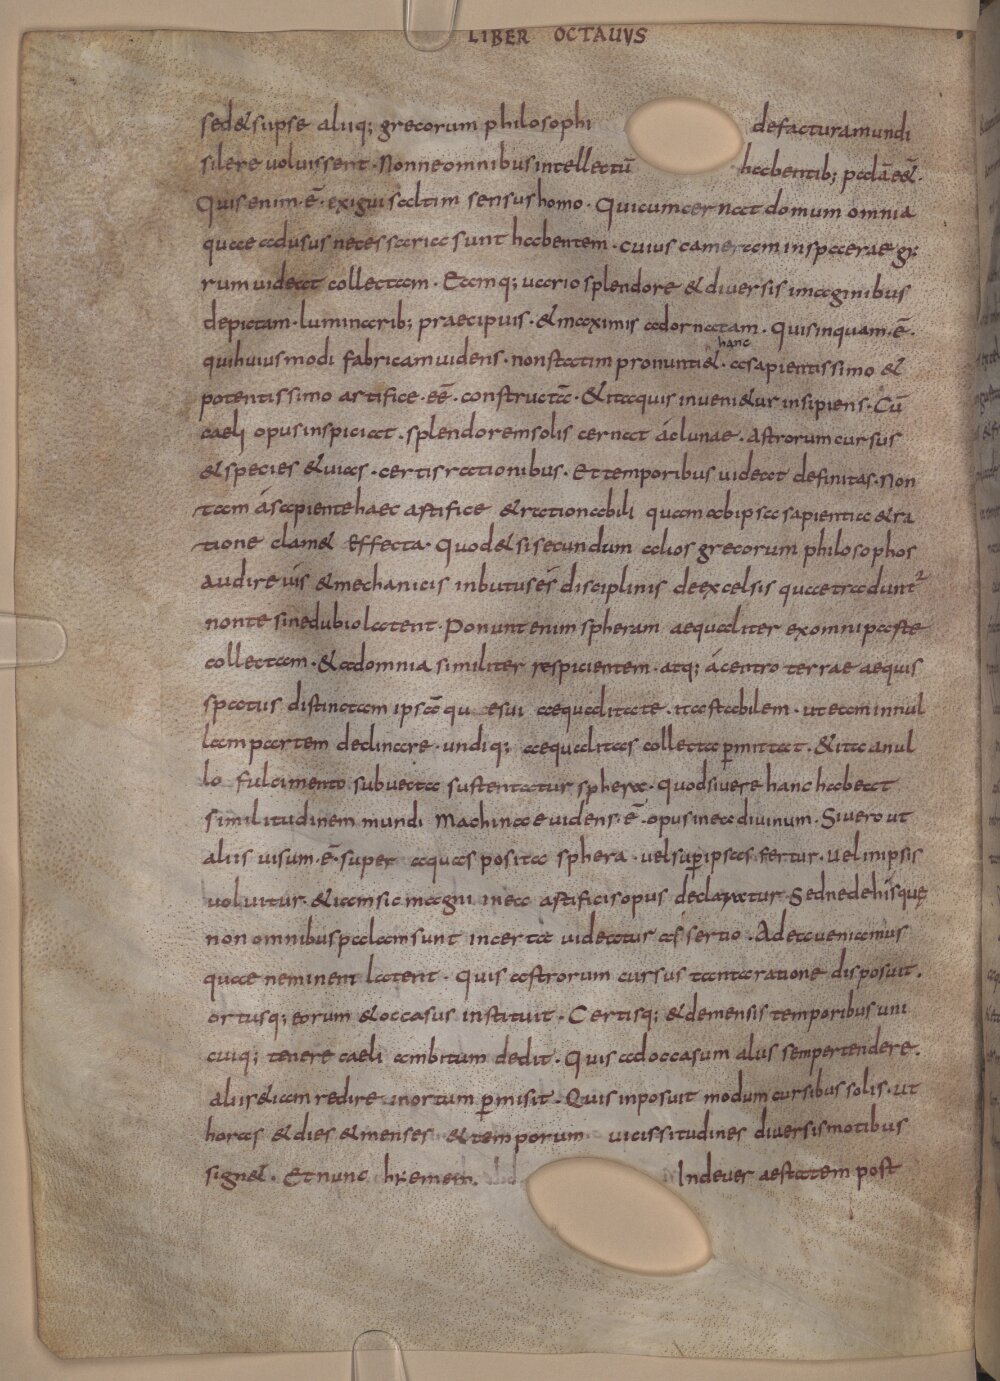 LIBER OCTAUVS
sed & supse aliiq; grecorum philosophi de factura mundi
silere voluissent. Nonne omnibus intellectū habentib; paclā e&.
Quis enim .ē. exigui saltim sensus homo. Qui cum cernat domum omnia
quae ad usus necessaria sunt habentem. cuius cameram inspicerae
rum videat collectam. Eamq; vario splendore & diversis imaginibus
depictam. luminarib; praecipuis. & maximis adornatam. Quis inquam .ē.
qui huiusmodi fabricam videns. non statim pronunti& hanc. a sapientissimo &
potentissimo artifice. eē. constructā. & ita quis inveni&ur insipiens. Cū
caeli opus inspiciat. splendorem solis cernat ác lunae. Astrorum cursus
& species & vias. certis rationibus. Et temporibus videat definitas. Non
tam á sapiente haec artifice & rationabili quam ab ipsa sapientia & ra
tione clam& effecta. Quod & si secundum alios grecorum philosophos
audire vis & mechanicis inbutus és disciplinis de excelsis quae tradunt
non te sine dubio latent. Ponunt enim spheram aequaliter ex omni parte
collectam. & ad omnia similiter respicientem. atq; á centro terrae aequis
spatiis distinctam ipsā qu esui aequalitate. ita stabilem. ut eam in nul
lam partem declinare. undiq; aequalitas collecta pmittat. & ita a nul
lo fulcimento subvecta sustentatur sphera. quod si vere hanc habeat
similitudinem mundi Machina evidens .ē. opus in ea divinum. Si vero ut
aliis visum .ē. super aquas posita sphera. vel sup ipsas fertur. vel in ipsis
voluitur. & iam sic magni in ea artificis opus declaratur. Sed ne de hisque
non omnibus palam sunt incerta videatur assertio. Ad ea veniamus
quae neminem latent. Quis astrorum cursus tanta ratione disposuit.
ortusq; eorum & occasus instituit. Certisq; & demensis temporibus uni
cuiq; tenere caeli ambitum dedit. Quis ad occasum aliis semper tendere.
aliis & iam redire in ortum pmisit. Quis inposuit modum cursibus solis. ut
horas & dies & menses & temporum vicissitudines diversis motibus
sign&. Et nunc hiemem. Inde ver aestatem post